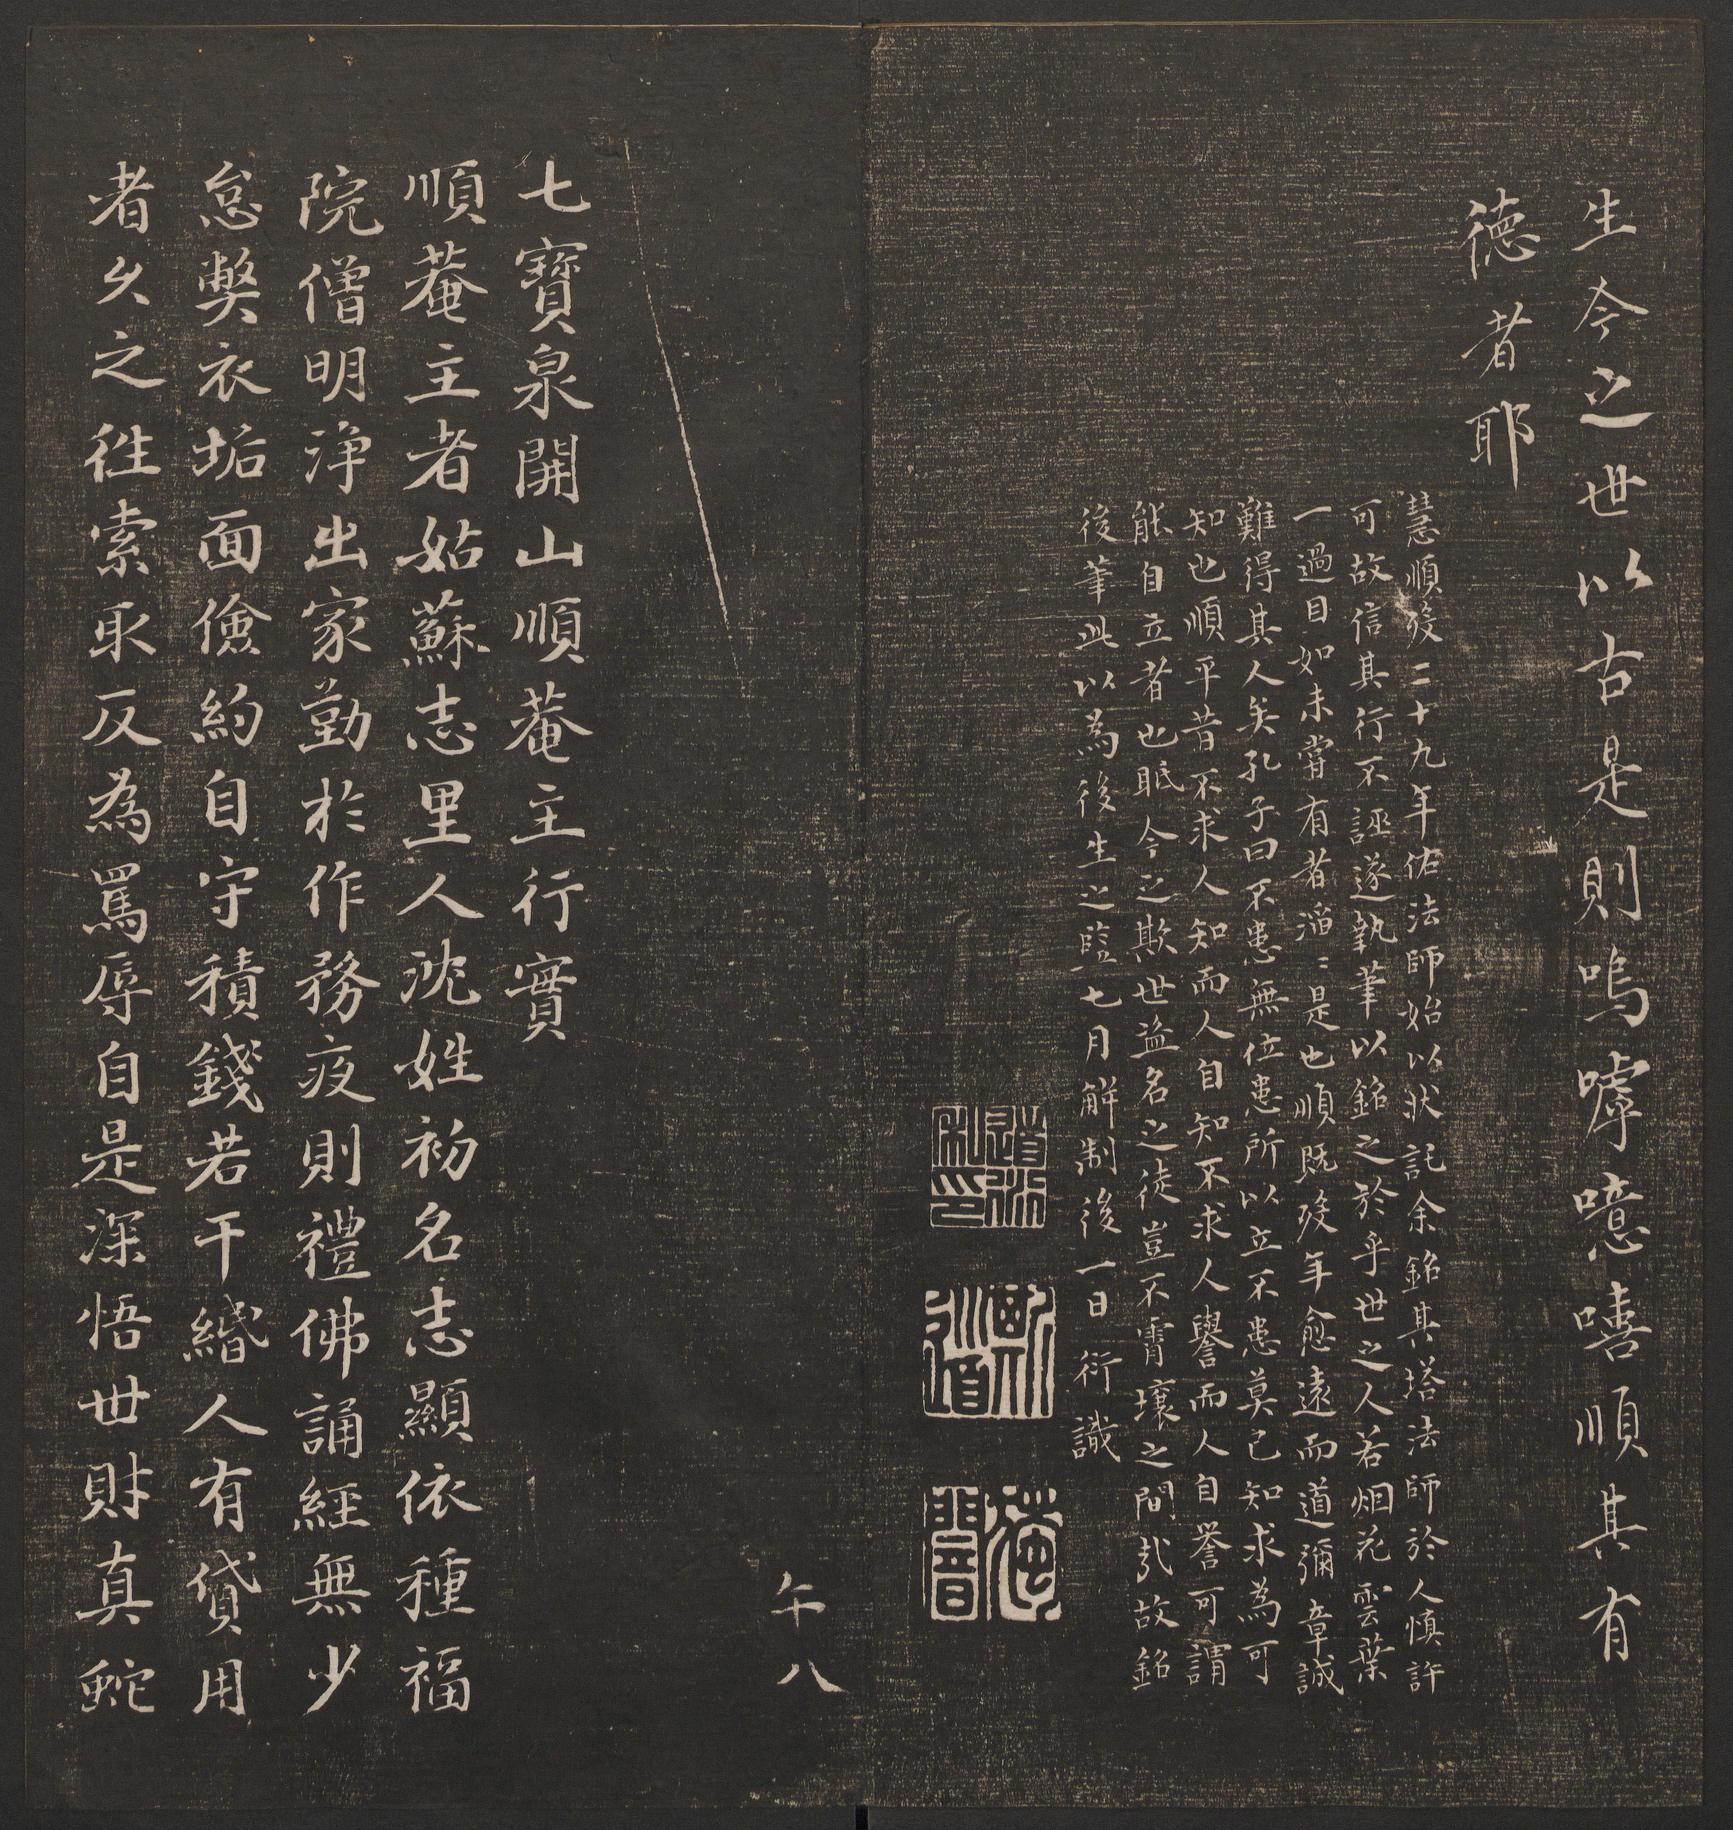 生今之世以古是則嗚嘑噫嘻順其有
德者耶
慧順歿二十九年佑法師始以狀託余銘其塔法師於人慎許
可故信其行不誣遂執筆以銘之於乎世之人若烟花雲葉
一過目如未嘗有者滔〻是也順既歿年愈遠而道彌章誠
難得其人矣孔子曰不患無位患所以立不患莫己知求為可
知也順平昔不求人知而人自知不求人譽而人自譽可謂
能自立者也眡今之欺世盜名之徒豈不霄壤之間哉故銘
後筆此以為後生之監七月解制後一日衍識
午八
七寶泉開山順菴主行實
順菴主者姑蘇志里人沈姓初名志顯依種福
院僧明淨出家勤於作務夜則禮佛誦經無少
怠弊衣垢面儉約自守積錢若干緡人有貸用
者久之往索取反為罵辱自是深悟世財真蛇